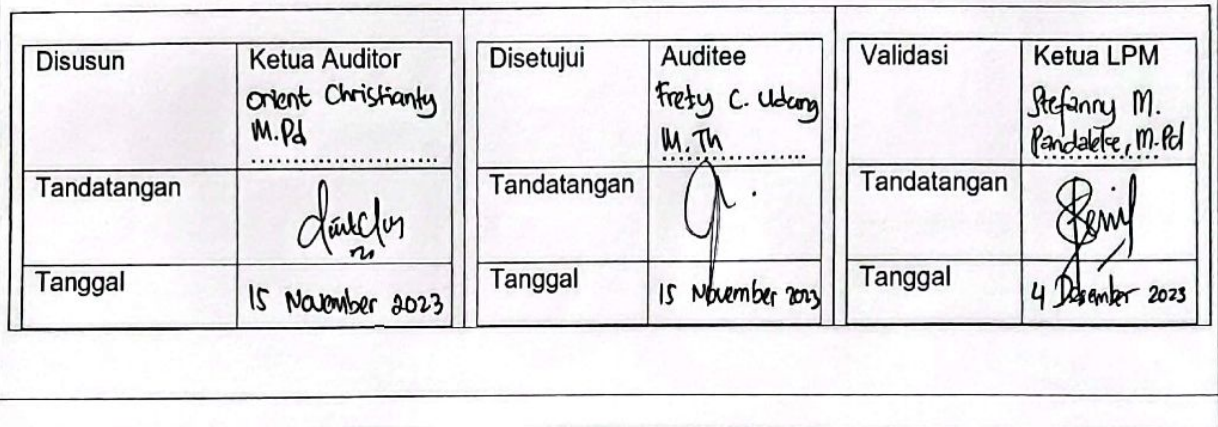 Disusun
Ketua Auditor
Orient Christianty
M.Pd
Tandatangan
Tanggal
15 November 2023
Disetujui
Auditee
Frety C. Udang
M.Th
Tandatangan
Tanggal
15 November 2023
Validasi
Ketua LPM
Stefanny M.
Pandaletse, M.Pd
Tandatangan
Tanggal
4 Desember 2023